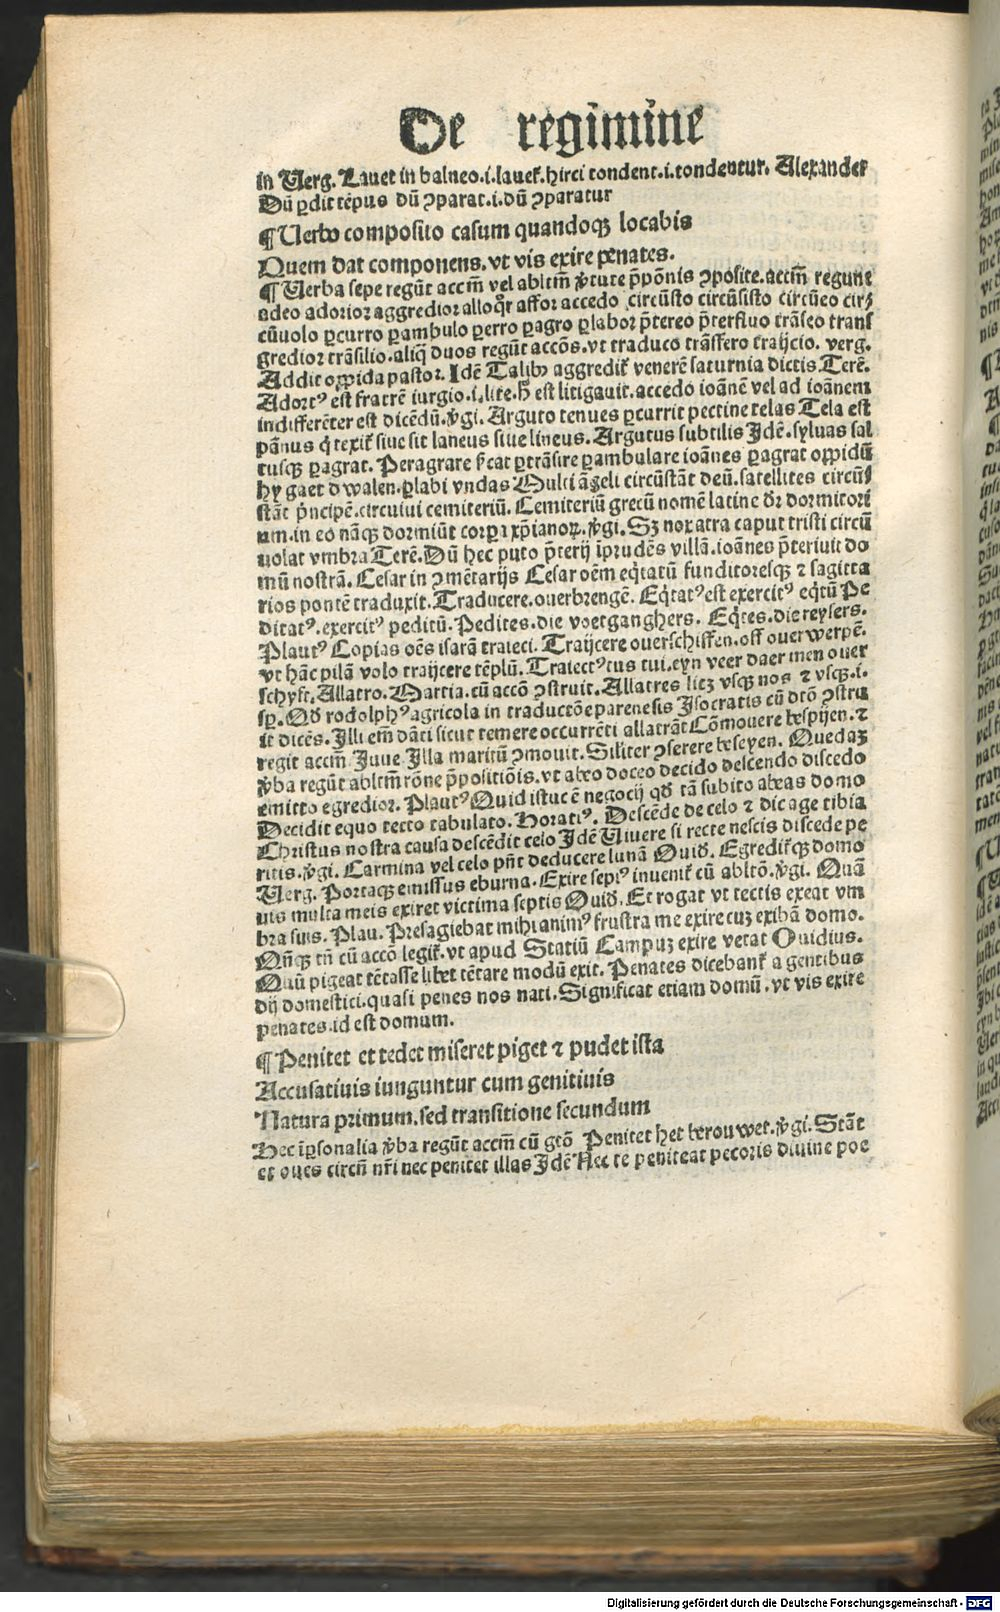 De regimine
in Verg. Lauet in balneo.i.lauet᷑. hirci tondent.i.tondentur. Alexander
Dū ꝑdit tēpus dū ꝯparat.i.dū ꝯparatur
¶ Uerbo composito casum quandoqꝫ locabis
Quem dat componens. vt vis exire penates.
¶ Uerba sepe regūt accm̄ vel abltm̄ v̓tute p̄pōnis ꝯposite. accm̄ regunt
adeo adorior aggredior alloqᷣr affor accedo circūsto circūsisto circūeo cirꝫ
cūuolo ꝑcurro ꝑambulo ꝑerro ꝑagro ꝑlabor p̄tereo p̄terfluo trāseo trans
gredior trāsilio. aliq̄ duos regūt accōs. vt traduco trāsfero traijcio. verg.
Addit oppida pastor. Idē Talibꝰ aggredit᷑ venerē saturnia dictis. Terē.
Adortꝰ est fratrē iurgio.i.lite. hͦ est litigauit. accedo ioānē vel ad ioānem
indifferēter est dicēdū. v̓gi. Arguto tenues ꝑcurrit pectine telas Tela est
pānus q̇ texit᷑ siue sit laneus siue lineus. Argutus subtilis Idē. syluas sal
tusqꝫ ꝑagrat. Peragrare s̓icat ꝑtrāsire ꝑambulare ioānes ꝑagrat oppidū
hy gaet d walen. ꝑlabi vndas Multi āgeli circūstāt deū. satellites circūs
stāt p̓ncipē. circuiui cemiteriū. Cemiteriū grecū nomē latine dr̄ dormitori
um. in eo nāqꝫ dormiūt corꝑa xp̄ianoꝝ. v̓gi. Sꝫ nox atra caput tristi circū
uolat vmbra Terē. Dū hec puto p̄terij īprudēs villā. ioānes p̄teriuit do
mū nostrā. Cesar in ꝯmētarijs Cesar oēm eq̇tatū funditoresqꝫ ⁊ sagitta
rios pontē traduxit. Traducere. ouerbrengē. Eq̇tatꝰ est exercitꝰ eq̇tū Pe
ditatꝰ. exercitꝰ peditū. Pedites. die voetganghers. Eq̇tes. die reysers.
Plautꝰ Copias oēs isarā traieci. Traijcere ouerschiffen. off ouerwerpē.
vt hāc pilā volo traijcere tēplū. Traiectꝰtus tui. eyn veer daer men ouer
schyft. Allatro. Martia. cū accō ꝯstruit. Allatres licꝫ vsqꝫ nos ⁊ vsqꝫ.i.
sp̄. Qđ rodolphꝰ agricola in traductōe parenesis Isocratis cū dtō ꝯstru
it dicēs. Illi em̄ dāti sicut temere occurrēti allatrāt Cōmouere bespijen. ⁊
regit accm̄. Iuue Illa maritū ꝯmouit. Siliter ꝯserere beseyen. Quedaꝫ
v̓ba regūt abltm̄ rōne p̄positiōis. vt abeo doceo decido descendo discedo
emitto egredior. Plautꝰ Quid istuc ē negocij qđ tā subito abeas domo
Decidit equo tecto tabulato. Horatiꝰ. Descēde de celo ⁊ dic age tibia
Christus nostra causa descēdit celo Idē Viuere si recte nescis discede pe
ritis. v̓gi. Carmina vel celo pn̄t deducere lunā Ouiđ. Egredit᷑qꝫ domo
Verg. Portaqꝫ emissus eburna. Exire sepiꝰ inuenit᷑ cū abltō. v̓gi. Quā
uis multa meis exiret victima septis Ouiđ. Et rogat vt tectis exeat vm
bra suis. Plau. Presagiebat mihi animꝰ frustra me exire cuꝫ exibā domo.
Qn̄qꝫ tn̄ cū accō legit᷑. vt apud Statiū Campuꝫ exire vetat Ouidius.
Quū pigeat tētasse libet tētare modū exit. Penates dicebant᷑ a gentibus
dij domestici. quasi penes nos nati. Significat etiam domū. vt vis exire
penates. id est domum.
¶ Penitet et tedet miseret piget ⁊ pudet ista
Accusatiuis iunguntur cum genitiuis
Natura primum. sed transitione secundum
Hec īꝑsonalia v̓ba regūt accm̄ cū gtō Penitet het berouwet. v̓gi. Stāt
et oues circū nr̄i nec penitet illas Idē Nec te peniteat pecoris diuine poe
Digitalisierung gefördert durch die Deutsche Forschungsgemeinschaft - DFG